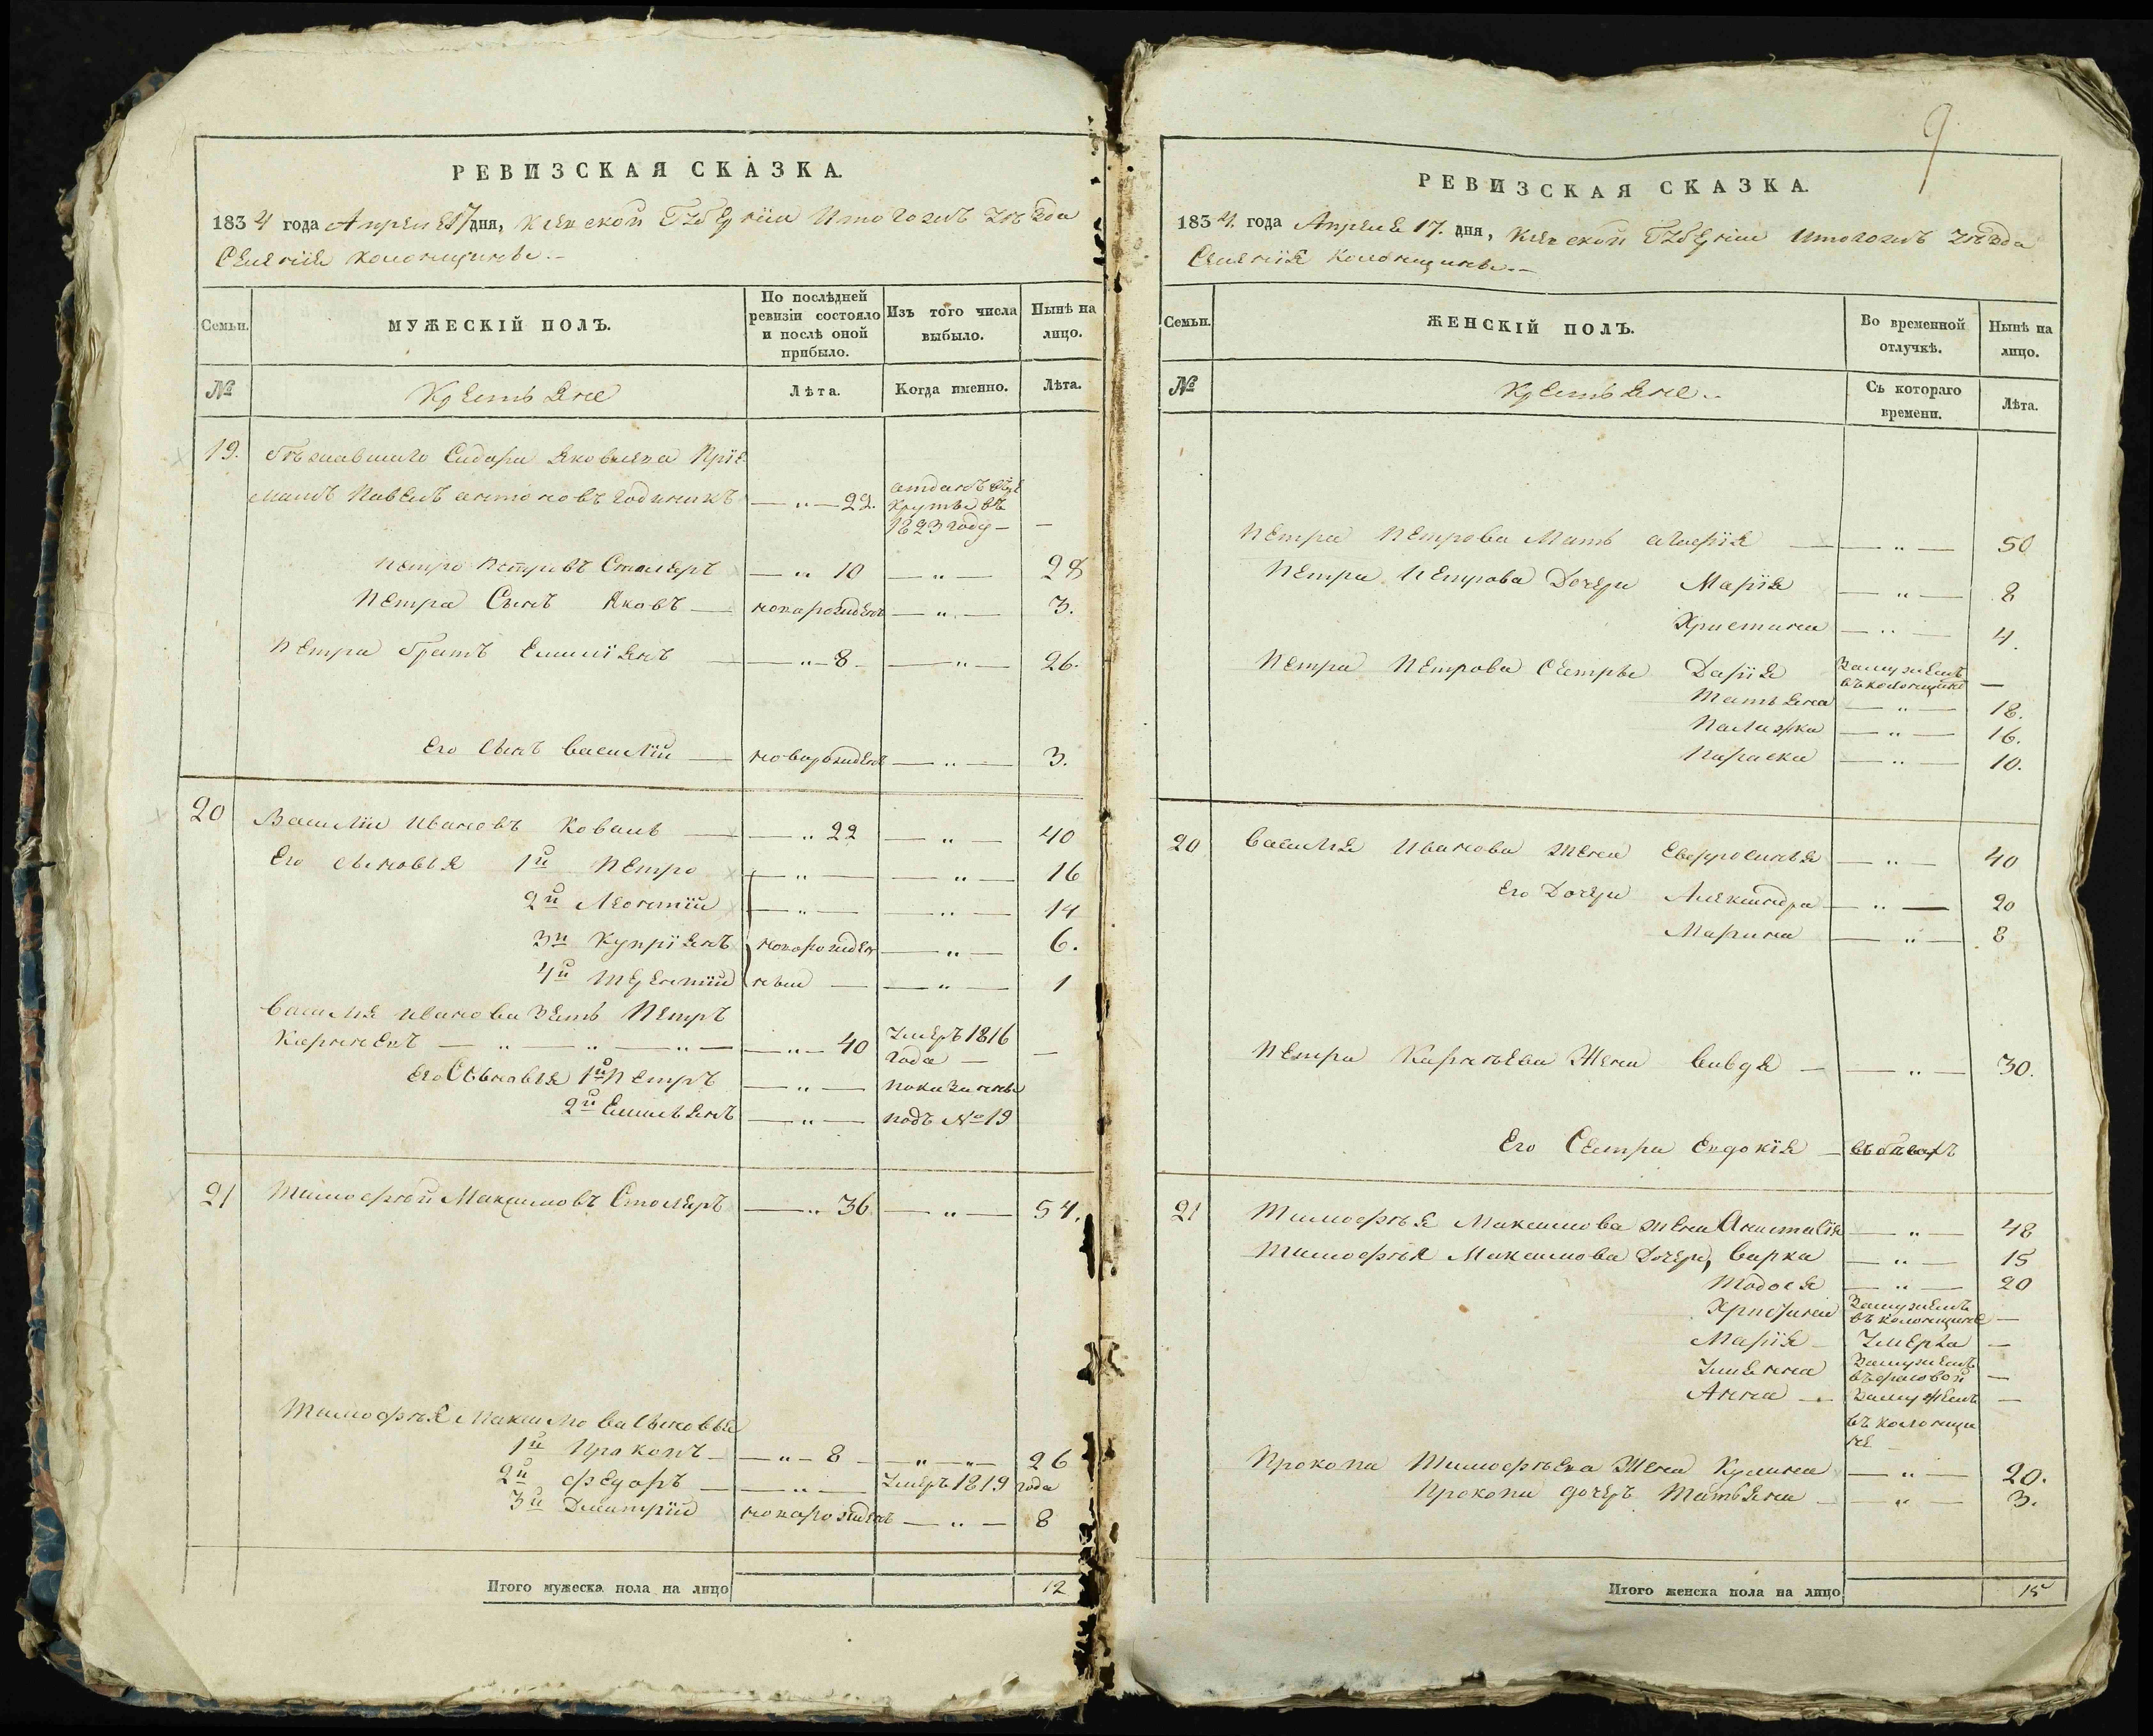 РЕВИЗСКАЯ СКАЗКА.
1834 года Апреля 17 дня, Киевской Губернии
Селения Колонщины.
Семьи.
МУЖЕСКІЙ ПОЛЪ.
По послѣдней ревизіи состояло и послѣ оной прибыло.
Изъ того числа выбыло.
Нынѣ на лицо.
№
Крестьяне
Лѣта.
Когда именно.
Лѣта.
19. Бѣжавшаго Сидора Яковлева Пріе-
мышъ Павелъ Антоновъ — " — 22. отданъ въ рекруты въ 1823 году — —
Петро Петровъ Столяръ — " 10 — " — 28
Петра Сынъ Яковъ — новорожденъ — " — 3.
Петра братъ Емиліянъ — " — 8 — " — 26.
Его сынъ Василій — новорожденъ — " — 3.
20 Василій Ивановъ Коваль — " 22 — " — 40
Его сыновья 1й Петро — " — — " — 16
2й Леонтій — " — — " — 14
3й Купріянъ новорожден — " — 6.
4й Терентій ные — — " — 1
Василя Иванова Зять Петръ
Карнѣевъ — " — " — " — — " — 40 Умеръ 1816 года — —
Его Сыновья 1й Петръ — " — показанны
2й Емильянъ — " — подъ №19
21 Тимофѣй Максимовъ Столяръ — " 36 — " — 54.
Тимофѣя Максимова сыновья
1й Прокопъ — " — 8 — " — " — 26
2й Федоръ — " — Умеръ 1819 года
3й Дмитрій новорожденъ — " — 8
Итого мужеска пола на лицо 12
9
РЕВИЗСКАЯ СКАЗКА.
1834. года Апреля 17. дня, Киевской Губернии
Селения Колонщины.
Семьи.
ЖЕНСКІЙ ПОЛЪ.
Во временной отлучкѣ.
Нынѣ на лицо.
№
Крестьяне
Съ котораго времени.
Лѣта.
Петра Петрова Мать — " — 50
Петра Петрова Дочери Марія — " — 8
Христина — " — 4.
Петра Петрова Сестры Дарія Замужемъ въ Колонщине —
Татьяна — " — 18.
Палажка — " — 16.
Параска — " — 10.
20 Василія Иванова Жена Евфросинья — " — 40
Его Дочери Александра — " — 20
Марина — " — 8
Петра Карнѣева Жена Вивдя — " — 30.
Его Сестра Евдокія —
21 Тимофѣя Максимова жена Анастасія — " — 48
Тимофѣя Максимова Дочери, Варка — " — 15
Тодося — " — 20
Христина Замужемъ въ Колонщине —
Марія — Умерла —
Ульянна Замужемъ —
Анна — Замужемъ въ Колонщи не —
Прокопа Тимофѣева Жена Кулина — " — 20.
Прокопа дочеръ Татьяна — " — 3.
Итого женска пола на лицо 15